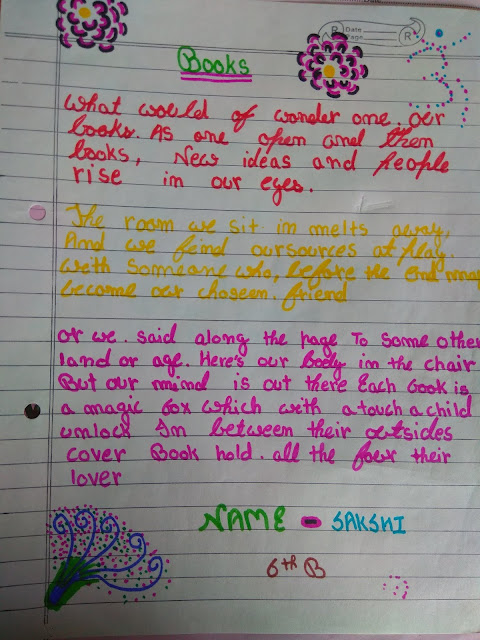 R Date
Page R
Books
What would of wonder one. our
books. As one open and then
books, New ideas and people
rise in our eyes.
The room we sit in melts away,
And we find oursources at play.
with someane who, before the end may
become our choseen. friend
or we. said along the page To some other
land or age. Here's our body in the chair
But our mimal is out there Each book is
a magic box which with a touch a child
umlock In between their outsides
cover Book hold. all the fowr their
lover
NAME - SAKSHI
6th B